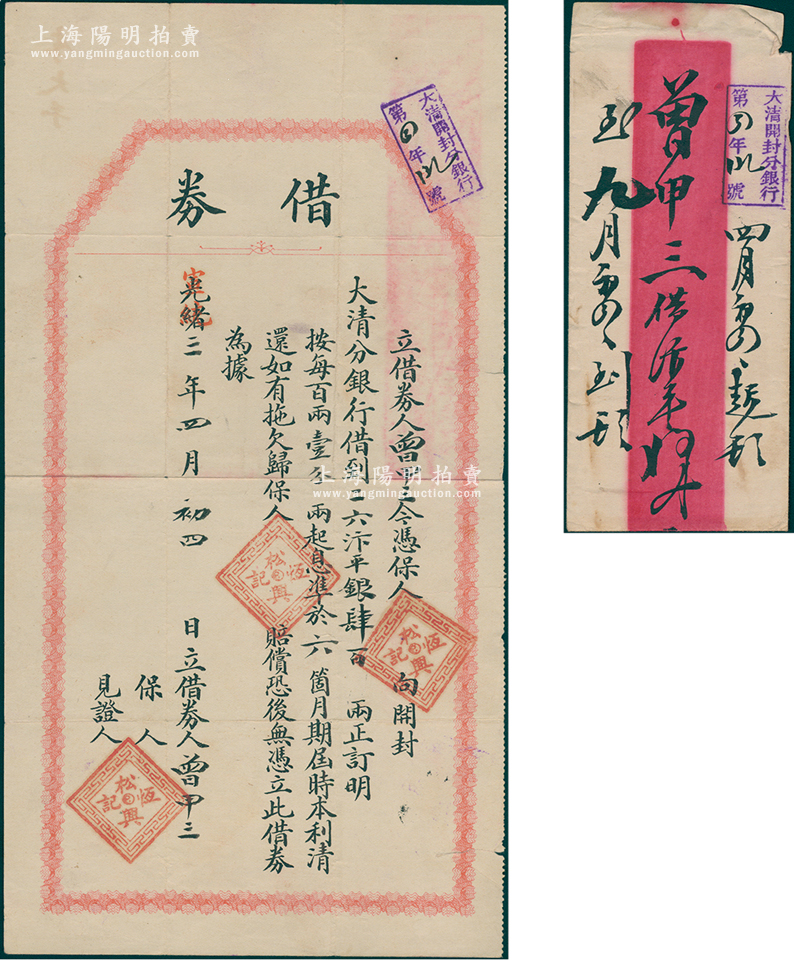 上海陽明拍賣
www.yangmingauction.com
大清開封分銀行
第 年 號
借券
立借券人曾甲三今憑保人 向開封
大清分銀行借到二六汴平銀肆百 兩正訂明
按每百兩壹 兩起息準於六箇月期屆時本利清
還如有拖欠歸保人 賠償恐後無憑立此借券
為據
光緒
宣統
二年四月初四 日立借券人曾甲三
保人
見證人
恆興
松記
恆興
松記
恆興
松記
上海陽明拍賣
www.yangmingauction.com
大清開封分銀行
第 年 號
四月初四
曾甲三借
九月初四